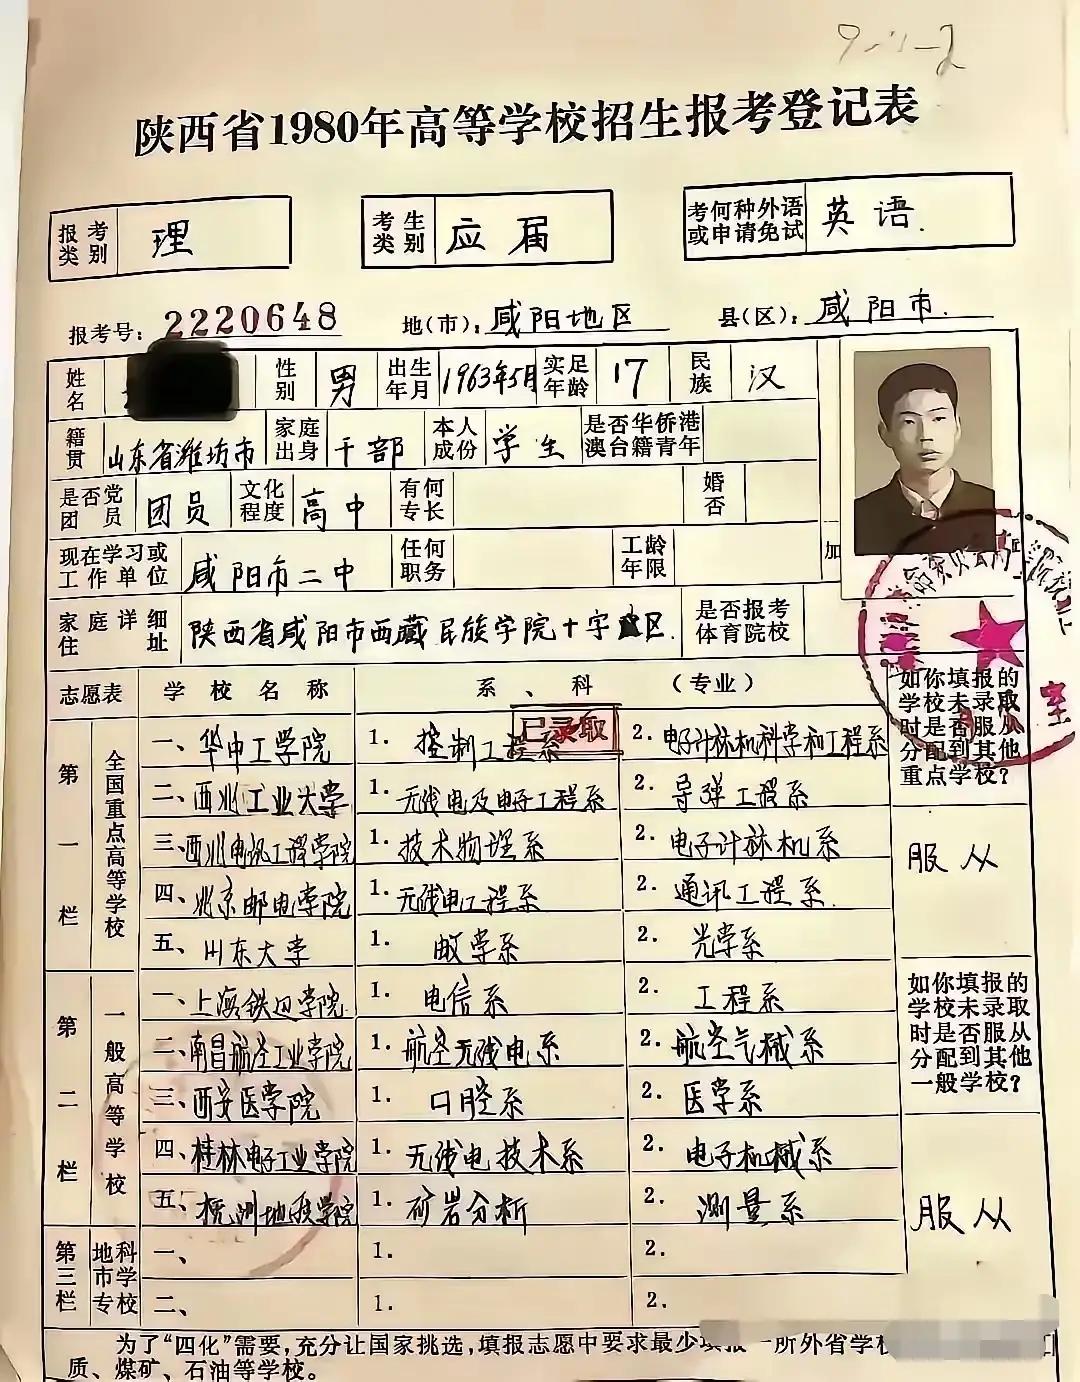 9-11-2
陕西省1980年高等学校招生报考登记表
报考类别 理 考生类别 应届 考何种外语或申请免试 英语.
报考号: 2220648 地(市): 咸阳地区 县(区): 咸阳市.
姓名 性别 男 出生年月 1963年5月 实足年龄 17 民族 汉
籍贯 山东省潍坊市 家庭出身 干部 本人成份 学生 是否华侨港澳台籍青年
是否党团员 团员 文化程度 高中 有何专长 婚否
现在学习或工作单位 咸阳市二中 任何职务 工龄年限 加
家庭详细住址 陕西省咸阳市西藏民族学院十字 区. 是否报考体育院校
志愿表 学校名称 系、科 (专业) 如你填报的学校未录取时是否服从分配到其他重点学校?
第一栏 全国重点高等学校
一、华中工学院 1. 控制工程系 已录取 2. 电子计算机科学和工程系
二、西北工业大学 1. 无线电及电子工程系 2. 导弹工程系
三、西北电讯工程学院 1. 技术物理系 2. 电子计算机系 服从
四、北京邮电学院 1. 无线电工程系 2. 通讯工程系.
五、山东大学 1. 数学系 2. 光学系
第二栏 一般高等学校 如你填报的学校未录取时是否服从分配到其他一般学校?
一、上海铁道学院 1. 电信系 2. 工程系
二、南昌航空工业学院 1. 航空无线电系 2. 航空气械系
三、西安医学院 1. 口腔系 2. 医学系
四、桂林电子工业学院 1. 无线电技术系 2. 电子机械系
五、杭州地质学院 1. 矿岩分析 2. 测量系 服从
第三栏 地市专科学校
一、 1. 2.
二、 1. 2.
为了“四化”需要,充分让国家挑选,填报志愿中要求最少填报一所外省学校
质、煤矿、石油等学校。